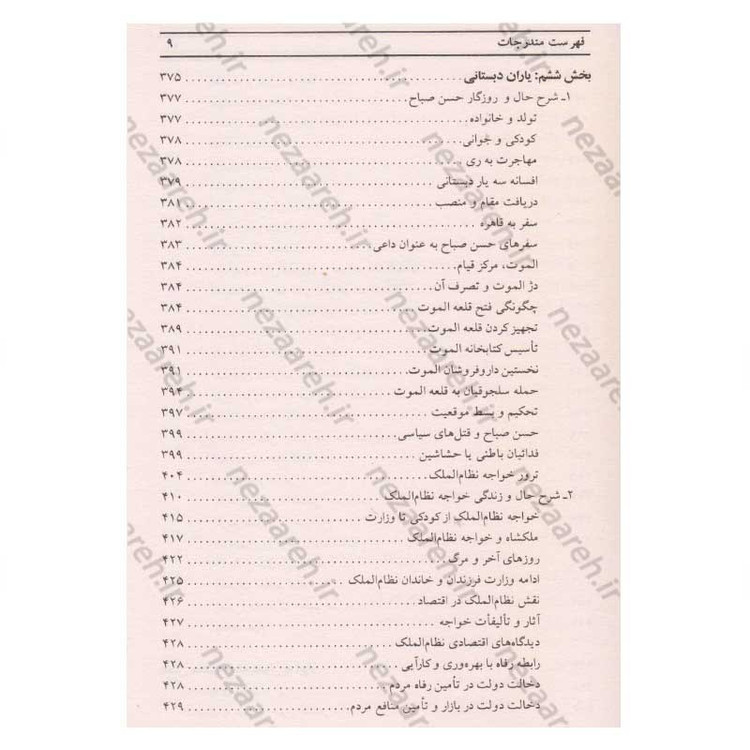 فهرست مندرجات ۹
بخش ششم: یاران دبستانی ۳۷۵
۱ـ شرح حال و روزگار حسن صباح ۳۷۷
تولد و خانواده ۳۷۷
کودکی و جوانی ۳۷۸
مهاجرت به ری ۳۷۸
افسانه سه یار دبستانی ۳۷۹
دریافت مقام و منصب ۳۸۱
سفر به قاهره ۳۸۲
سفرهای حسن صباح به عنوان داعی ۳۸۳
الموت، مرکز قیام ۳۸۴
دژ الموت و تصرف آن ۳۸۴
چگونگی فتح قلعه الموت ۳۸۴
تجهیز کردن قلعه الموت ۳۸۹
تأسیس کتابخانه الموت ۳۹۱
نخستین داروفروشان الموت ۳۹۱
حمله سلجوقیان به قلعه الموت ۳۹۴
تحکیم و بسط موقعیت ۳۹۷
حسن صباح و قتل‌های سیاسی ۳۹۹
فدائیان باطنی یا حشاشین ۳۹۹
ترور خواجه نظام‌الملک ۴۰۴
۲ـ شرح حال و زندگی خواجه نظام‌الملک ۴۱۰
خواجه نظام‌الملک از کودکی تا وزارت ۴۱۵
ملکشاه و خواجه نظام‌الملک ۴۱۷
روزهای آخر و مرگ ۴۲۲
ادامه وزارت فرزندان و خاندان نظام‌الملک ۴۲۵
نقش نظام‌الملک در اقتصاد ۴۲۶
آثار و تألیفات خواجه ۴۲۷
دیدگاه‌های اقتصادی نظام‌الملک ۴۲۸
رابطه رفاه با بهره‌وری و کارآیی ۴۲۸
دخالت دولت در تأمین رفاه مردم ۴۲۸
دخالت دولت در بازار و تأمین منافع مردم ۴۲۹
nezaareh.ir